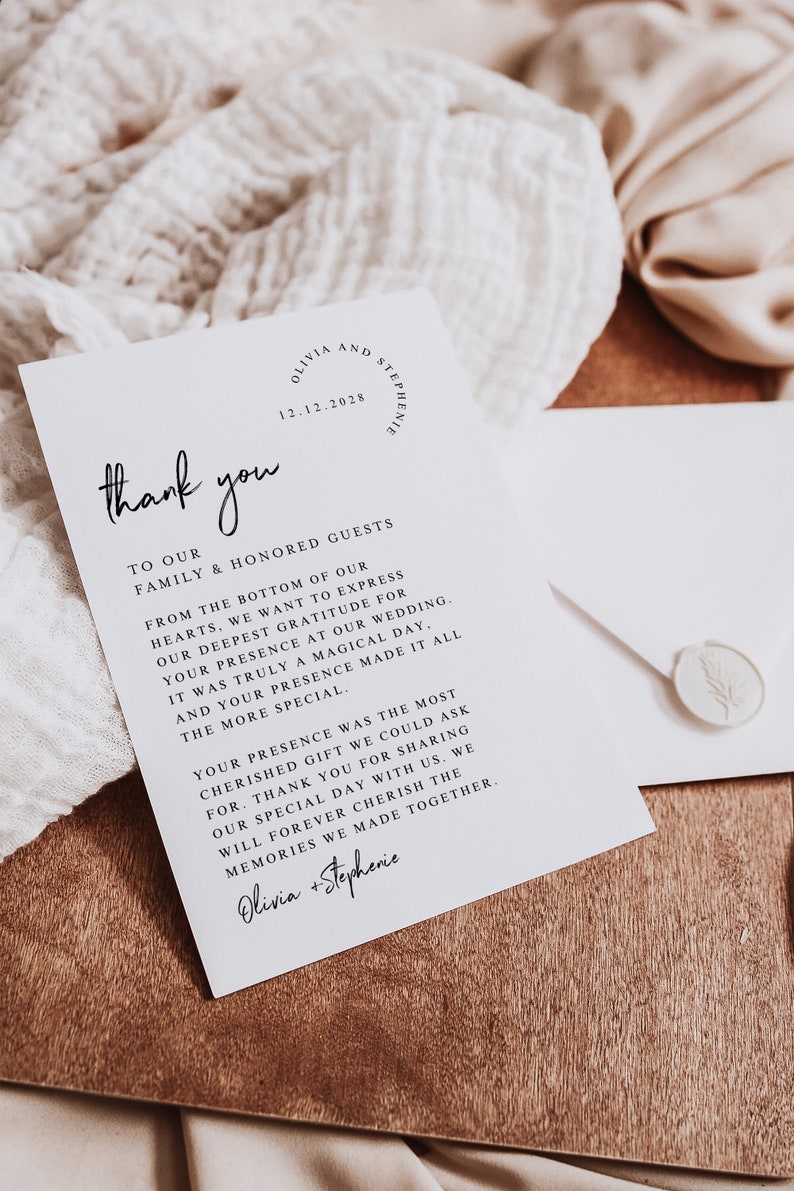 OLIVIA AND STEPHENIE
12.12.2028
thank you
TO OUR
FAMILY & HONORED GUESTS
FROM THE BOTTOM OF OUR
HEARTS, WE WANT TO EXPRESS
OUR DEEPEST GRATITUDE FOR
YOUR PRESENCE AT OUR WEDDING.
IT WAS TRULY A MAGICAL DAY,
AND YOUR PRESENCE MADE IT ALL
THE MORE SPECIAL.
YOUR PRESENCE WAS THE MOST
CHERISHED GIFT WE COULD ASK
FOR. THANK YOU FOR SHARING
OUR SPECIAL DAY WITH US. WE
WILL FOREVER CHERISH THE
MEMORIES WE MADE TOGETHER.
Olivia +Stephenie